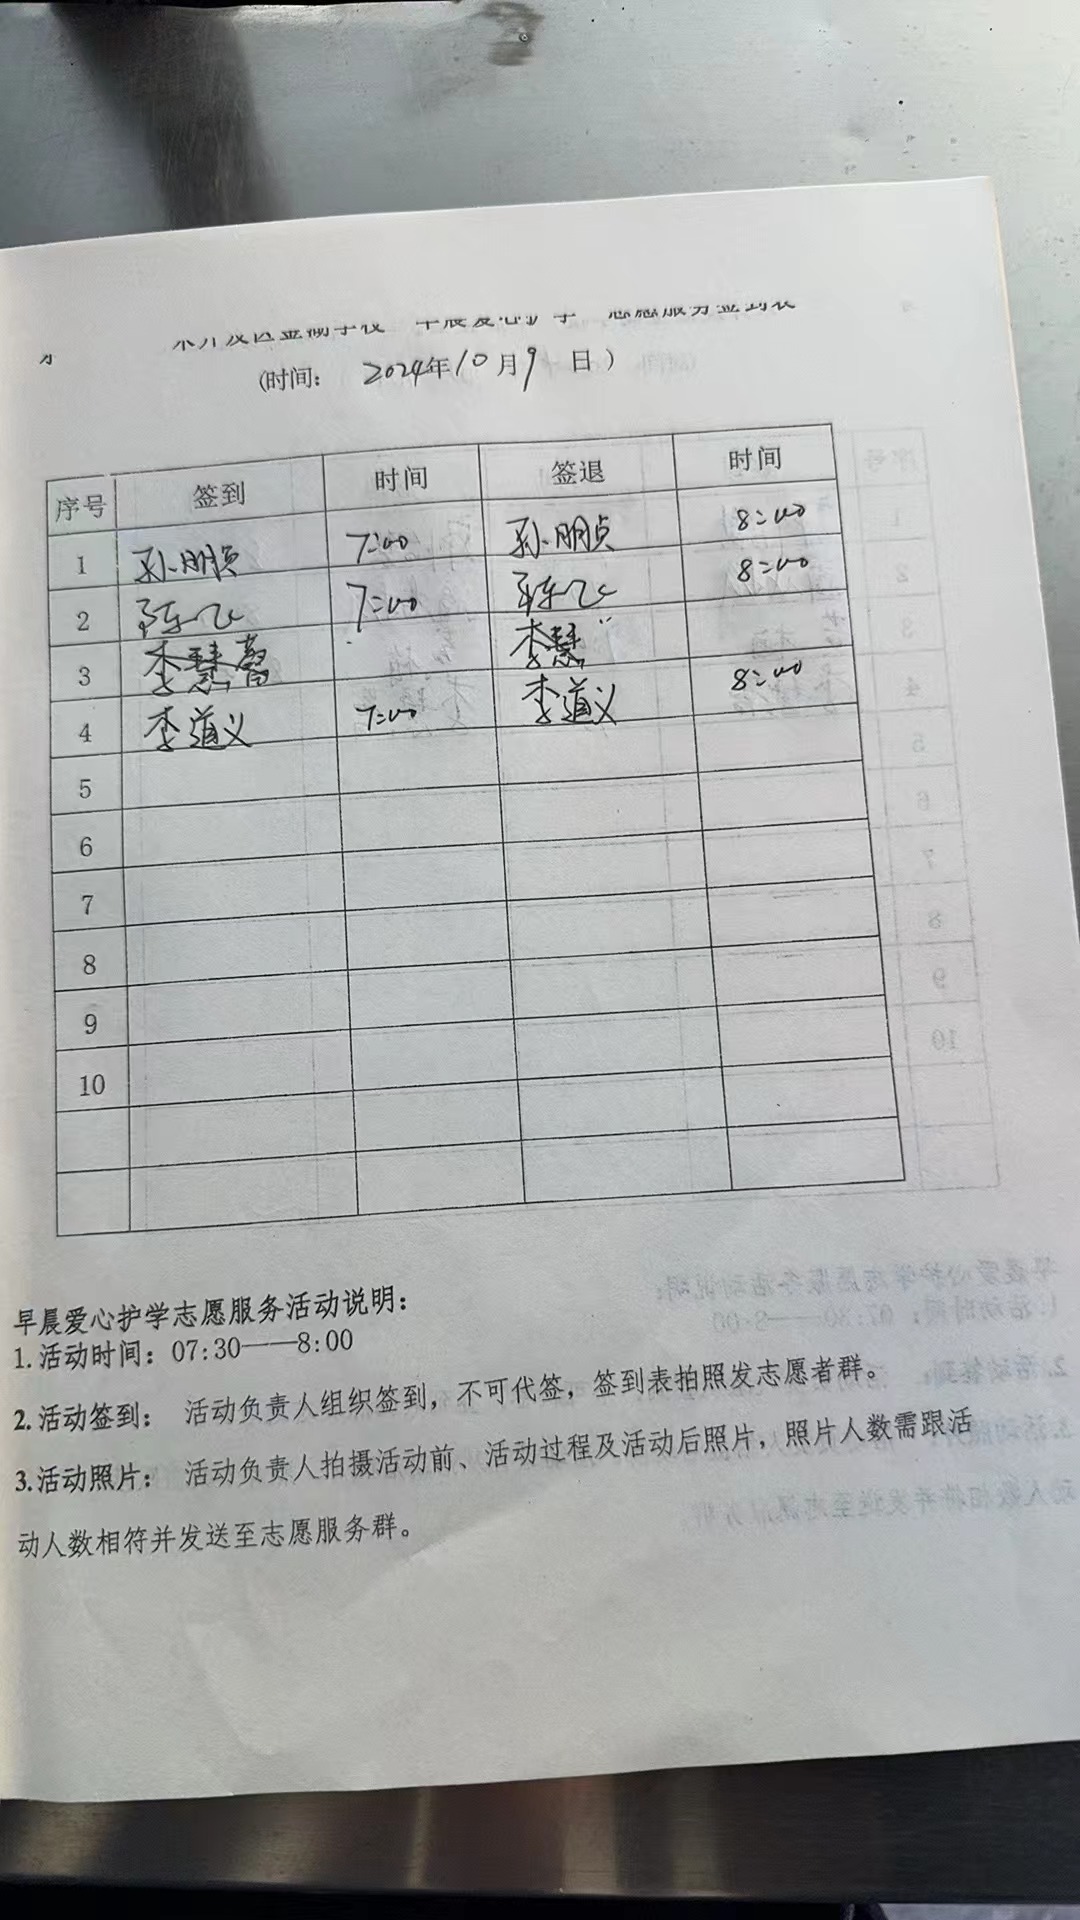 (时间： 2024年10月9日）
序号 签到 时间 签退 时间
1 孙朋贞 7:00 孙朋贞 8:00
2 陈飞 7:00 陈飞 8:00
3 李慧 李慧
4 李道义 7:00 李道义 8:00
5
6
7
8
9
10
早晨爱心护学志愿服务活动说明：
1.活动时间：07:30——8:00
2.活动签到： 活动负责人组织签到，不可代签，签到表拍照发志愿者群。
3.活动照片： 活动负责人拍摄活动前、活动过程及活动后照片，照片人数需跟活
动人数相符并发送至志愿服务群。